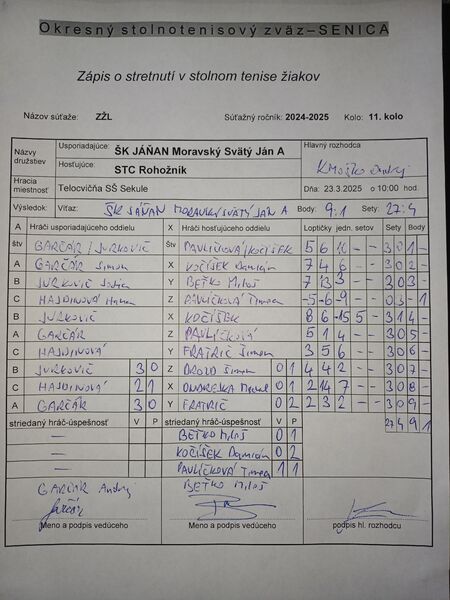 Okresný stolnotenisový zväz–SENICA
Zápis o stretnutí v stolnom tenise žiakov
Názov súťaže: ZŽL Súťažný ročník: 2024-2025 Kolo: 11. kolo
Názvy družstiev Usporiadajúce: ŠK JÁŇAN Moravský Svätý Ján A Hlavný rozhodca
Hosťujúce: STC Rohožník
Hracia miestnosť Telocvičňa SŠ Sekule Dňa: 23.3.2025 o 10:00 hod.
Výsledok: Víťaz: ŠK JÁŇAN MORAVSKÝ SVÄTÝ JÁN A Body: 9:1 Sety: 27:4
A Hráči usporiadajúceho oddielu X Hráči hosťujúceho oddielu Loptičky jedn. setov Sety Body
štv GARČÁR / JURKOVIČ Štv PAVLÍČKOVÁ/KOČÍŠEK 5 6 10 - - 3 0 1 -
A GARČÁR Šimon X KOČÍŠEK Damián 7 4 6 - - 3 0 2 -
B JURKOVIČ Y BEŤKO Miloš 7 3 3 - - 3 0 3 -
C HAJDINOVÁ Hana Z PAVLÍČKOVÁ Timea -5 -6 -9 - - 0 3 - 1
B JURKOVIČ X KOČÍŠEK 8 6 -15 5 - 3 1 4 -
A GARČÁR Z PAVLÍČKOVÁ 5 1 4 - - 3 0 5 -
C HAJDINOVÁ Y FRATRIČ Šimon 3 5 6 - - 3 0 6 -
B JURKOVIČ 3 0 Z DROZD Šimon 0 1 4 4 2 - - 3 0 7 -
C HAJDINOVÁ 2 1 X ONDREJKA 0 1 2 4 7 - - 3 0 8 -
A GARČÁR 3 0 Y FRATRIČ 0 2 2 3 2 - - 3 0 9 -
striedaný hráč-úspešnosť V P striedaný hráč-úspešnosť V P 27 4 9 1
— BEŤKO Miloš 0 1
— KOČÍŠEK Damián 0 2
— PAVLÍČKOVÁ Timea 1 1
GARČÁR Andrej BEŤKO Miloš
Meno a podpis vedúceho Meno a podpis vedúceho podpis hl. rozhodcu